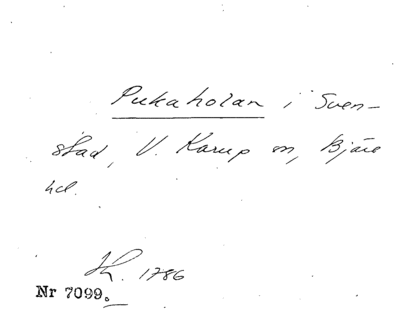 Pukaholan i Sven-
stad, V. Karup sn, Bjäre
hd.
Sk. 1786
Nr 7099.